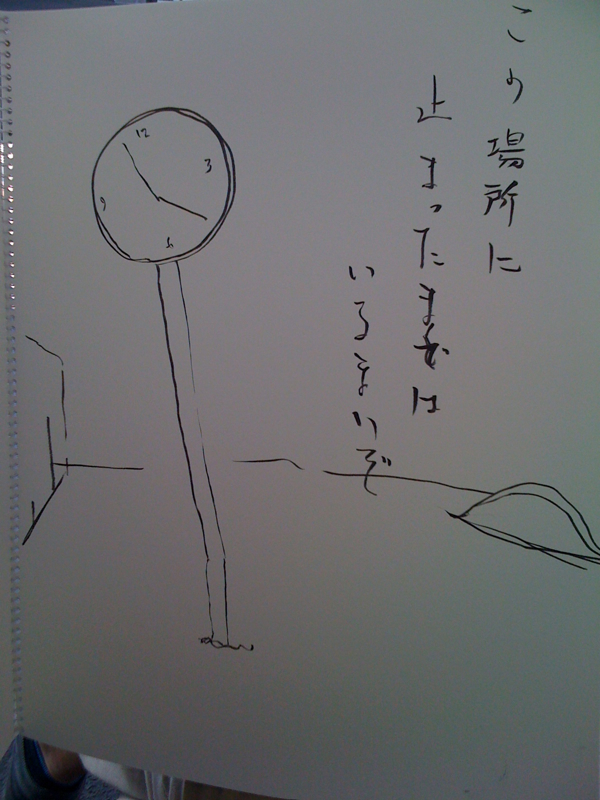 この場所に
止まったままは
いるまいぞ
12
3
9
6